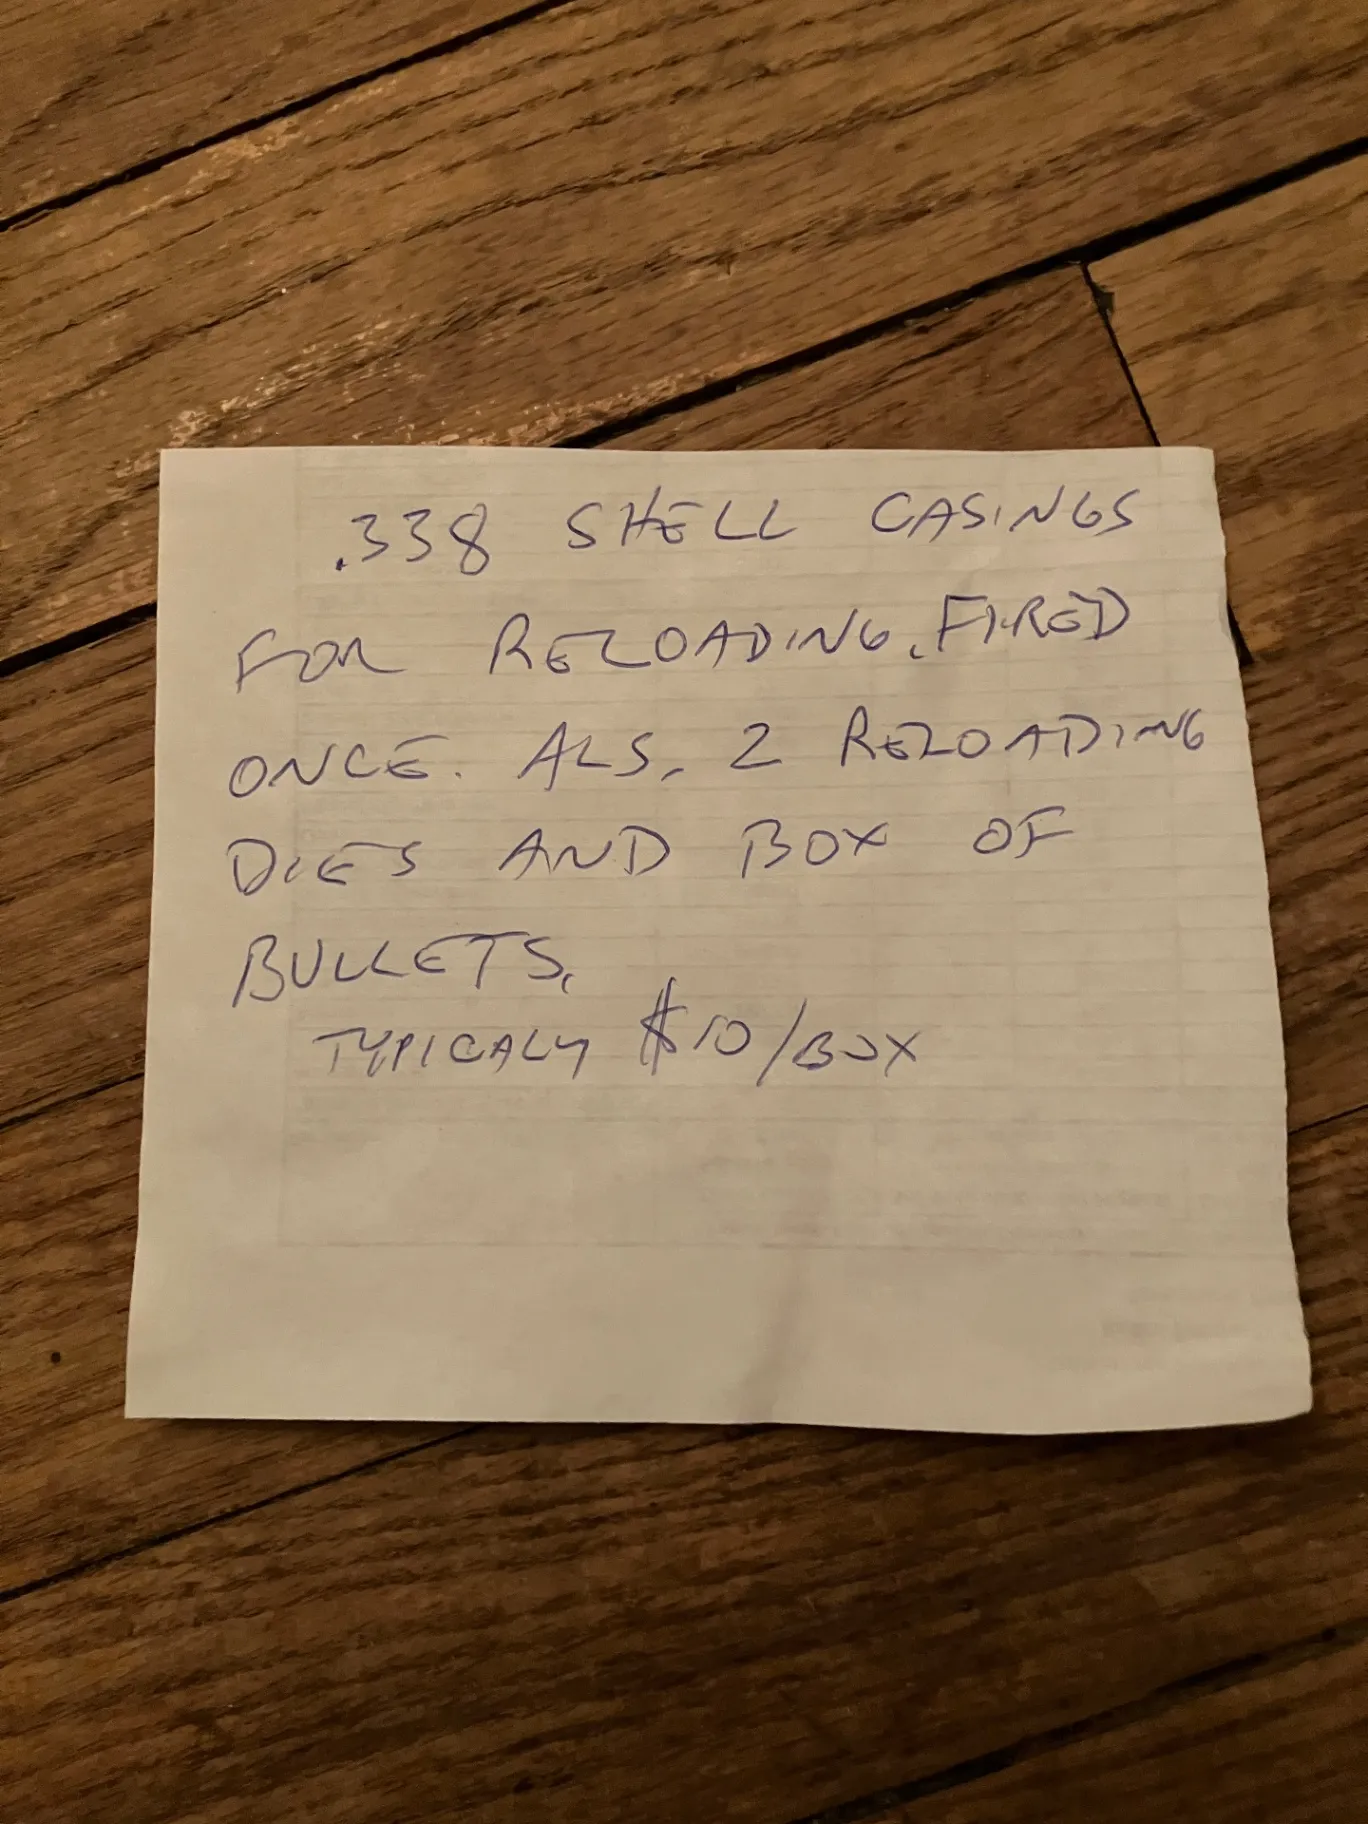 .338 SHELL CASINGS
FOR RELOADING. FIRED
ONCE. ALS. 2 RELOADING
DIES AND BOX OF
BULLETS.
TYPICALY $10/BOX